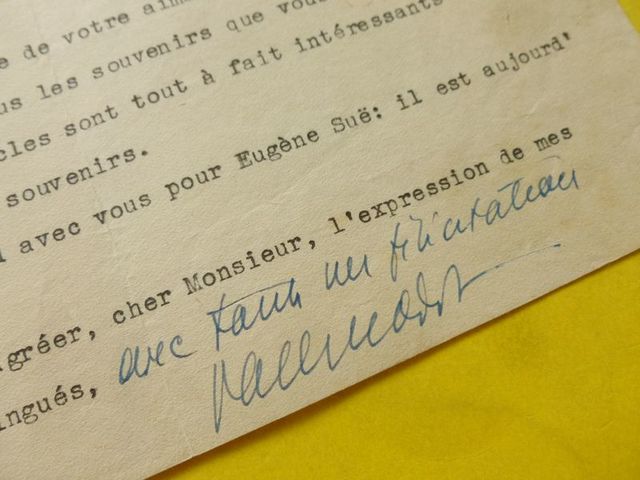 e de votre aima
us les souvenirs que vous
cles sont tout à fait intéressants
souvenirs.
avec vous pour Eugène Suë: il est aujourd'
gréer, cher Monsieur, l'expression de mes
ingués, avec toutes mes félicitations